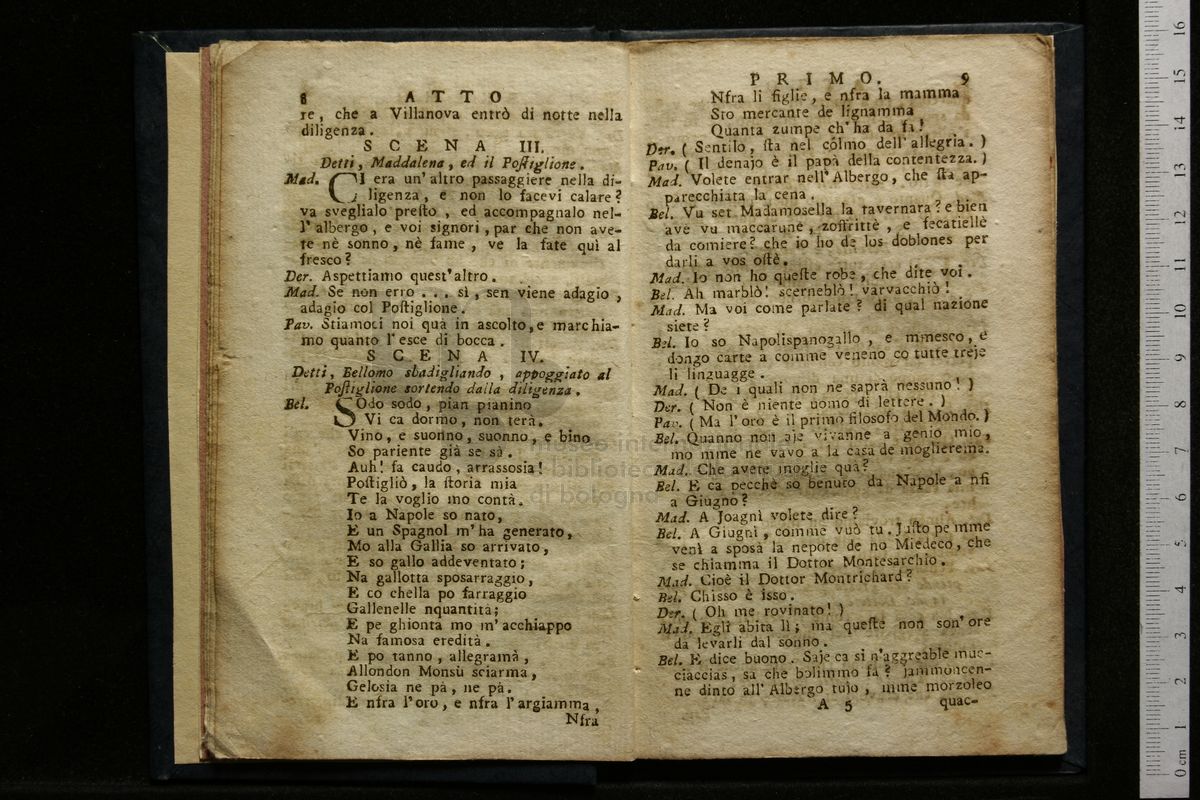 8 ATTO
re, che a Villanova entrò di notte nella
diligenza.
SCENA III.
Detti, Maddalena, ed il Poſtiglione.
Mad. CI era un'altro passaggiere nella di-
ligenza, e non lo facevi calare?
va sveglialo preſto, ed accompagnalo nel-
l'albergo, e voi signori, par che non ave-
te nè sonno, nè fame, ve la fate quì al
fresco?
Der. Aspettiamo quest'altro.
Mad. Se non erro... sì, sen viene adagio,
adagio col Poſtiglione.
Pav. Stiamoci noi quà in ascolto, e marchia-
mo quanto l'esce di bocca.
SCENA IV.
Detti, Bellomo sbadigliando, appoggiato al
Poſtiglione sortendo dalla diligenza.
Bel. SOdo sodo, pian pianino
Vi ca dormo, non terà.
Vino, e suonno, suonno, e bino
So pariente già se sà.
Auh! fa caudo, arrassosia!
Poſtigliò, la ſtoria mia
Te la voglio mo contà.
Io a Napole so nato,
E un Spagnol m'ha generato,
Mo alla Gallia so arrivato,
E so gallo addeventato;
Na gallotta sposarraggio,
E co chella po farraggio
Gallenelle nquantità;
E pe ghionta mo m'acchiappo
Na famosa eredità.
E po tanno, allegramà,
Allondon Monsù sciarma,
Gelosia ne pà, ne pà.
E nfra l'oro, e nfra l'argiamma,
Nfra
PRIMO. 9
Nfra li figlie, e nfra la mamma
Sto mercante de lignamma
Quanta zumpe ch'ha da fa!
Der. ( Sentilo, ſta nel cólmo dell'allegria. )
Pav. ( Il denajo è il papà della contentezza. )
Mad. Volete entrar nell'Albergo, che ſta ap-
parecchiata la cena.
Bel. Vu set Madamosella la tavernara? e bien
avè vu maccarune, zoffrittè, e fecatiellè
da comiere? che io ho de los doblones per
darli a vos oſtè.
Mad. Io non ho queſte robe, che dite voi.
Bel. Ah marblò! scerneblò! varvacchiò!
Mad. Ma voi come parlate? di qual nazione
siete?
Bel. Io so Napolispanogallo, e mmesco, e
dongo carte a comme veneno co tutte treje
li linzuagge.
Mad. ( De i quali non ne saprà nessuno! )
Der. ( Non è niente uomo di lettere. )
Pav. ( Ma l'oro è il primo filosofo del Mondo. )
Bel. Quanno non aje vivanne a genio mio,
mo mme ne vavo a la casa de moglierema.
Mad. Che avete moglie quà?
Bel. E ca pecchè so benuto da Napole a nfi
a Giugnò?
Mad. A Joagnì volete dire?
Bel. A Giugnì, comme vuò tu. Juſto pe mme
venì a sposà la nepote de no Miedeco, che
se chiamma il Dottor Montesarchio.
Mad. Cioè il Dottor Montrichard?
Bel. Chisso è isso.
Der. ( Oh me rovinato! )
Mad. Egli abita lì; ma queſte non son'ore
da levarli dal sonno.
Bel. E dice buono. Saje ca si n'aggreable muc-
ciaccias, sa che bolimmo fà? jammoncen-
ne dinto all'Albergo tujo, mme morzoleo
A 5 quac-